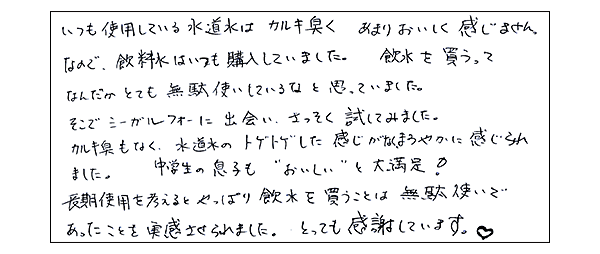 いつも使用している水道水は カルキ臭く あまりおいしく感じません。
なので、飲料水はいつも購入していました。 飲水を買うって
なんだかとても無駄使いしているなと思っていました。
そこでミーガルフォーに出会い、さっそく試してみました。
カルキ臭もなく、水道水のトゲトゲした感じがなくまろやかに感じられ
ました。 中学生の息子も "おいしい" と大満足!
長期使用を考えるとやっぱり飲水を買うことは無駄使いで
あったことを実感させられました。とっても感謝しています。♡